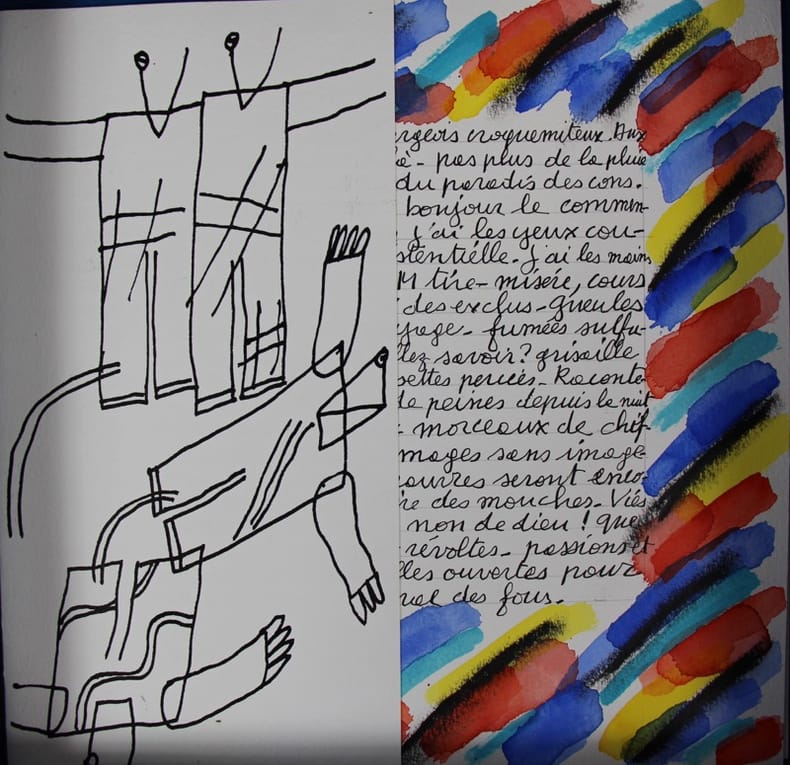 rgeois croquemiteux. Aux
è - pas plus de la pluie
du paradis des cons.
bonjour le commen-
j'ai les yeux cou-
stentiélle. J'ai les mains
M tire-misére, cours
des exclus - gueules
yage - fumées sulfu-
lez savoir? grisaille
settes percées - Raconte-
de peines depuis la nuit
morceaux de chif-
mages sans image-
pauvres seront enco-
re des mouches - Viés
non de dieu! que
révoltes - passions et
lles ouvertes pour
nal des fous.